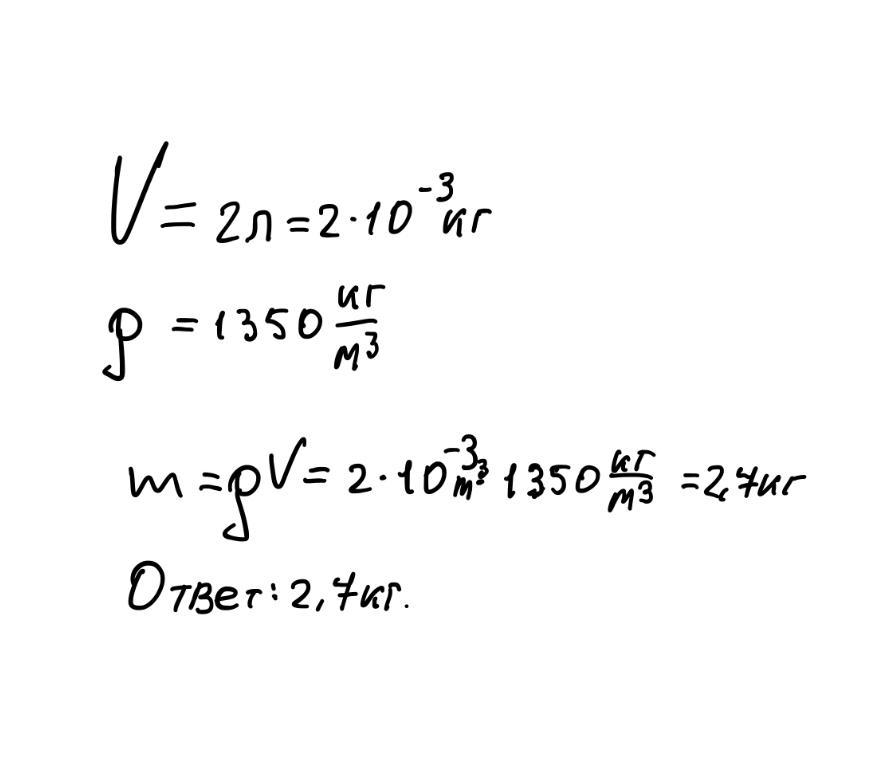 V = 2л = 2·10⁻³ кг
ρ = 1350 кг/м³
m = ρV = 2·10⁻³ м³ 1350 кг/м³ = 2,7кг
Ответ: 2,7кг.